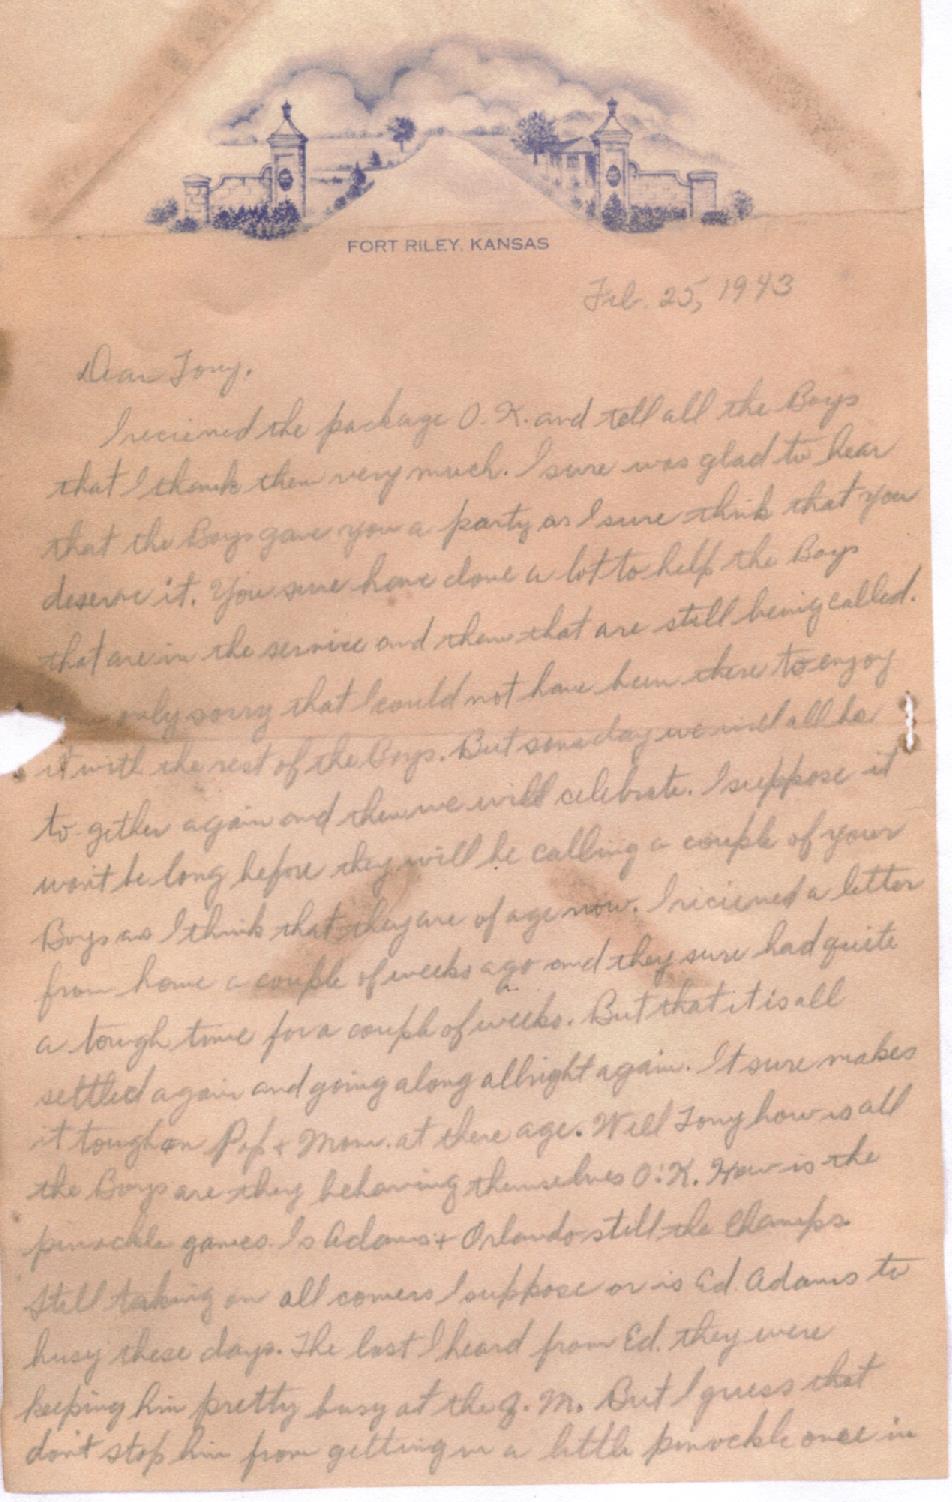 FORT RILEY, KANSAS
Feb. 25, 1943
Dear Tony,
I recieved the package O.K. and tell all the Boys
that I thank them very much. I sure was glad to hear
that the Boys gave you a party as I sure think that you
deserve it. You sure have done a lot to help the Boys
that are in the service and them that are still being called.
only sorry that I could not have been there to enjoy
it with the rest of the Boys. But someday we will all be
to gether again and then we will celebrate. I suppose it
won't be long before they will be calling a couple of your
Boys as I think that they are of age now. I recieved a letter
from home a couple of weeks ago and they sure had quite
a tough time for a couple of weeks. But that it is all
settled again and going along allright again. It sure makes
it tough on Pop + Mom. at there age. Well Tony how is all
the Boys are they behaving themselves O.K. How is the
pinockle games. Is Adams + Orlando still the Champs.
Still taking on all comers I suppose or is Ed. Adams to
busy these days. The last I heard from Ed. they were
keeping him pretty busy at the G.M. But I guess that
don't stop him from getting in a little pinockle once in